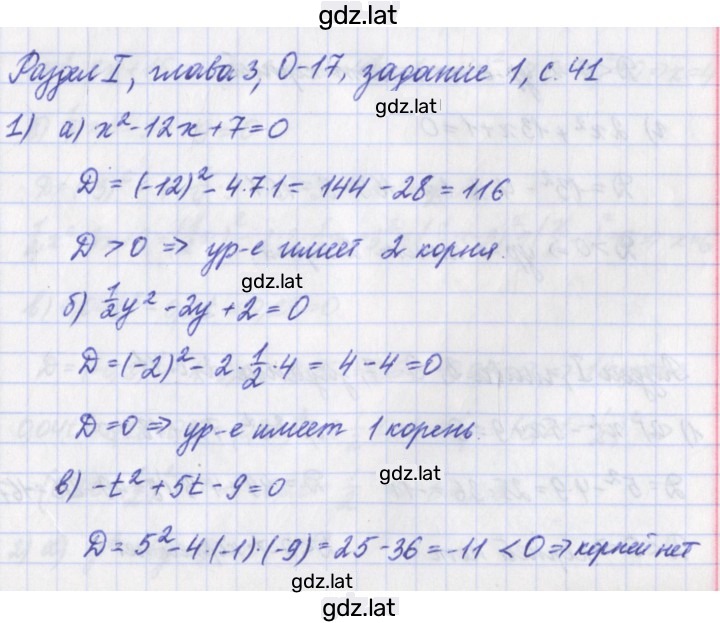 gdz.lat
Раздел I, глава 3, О-17, задание 1, с. 41
gdz.lat
1) а) x² - 12x + 7 = 0
D = (-12)² - 4·7·1 = 144 - 28 = 116
D > 0 => ур-е имеет 2 корня.
gdz.lat
б) 1/2y² - 2y + 2 = 0
D = (-2)² - 2·1/2·4 = 4 - 4 = 0
D = 0 => ур-е имеет 1 корень.
gdz.lat
в) -t² + 5t - 9 = 0
D = 5² - 4·(-1)·(-9) = 25 - 36 = -11 < 0 => корней нет
gdz.lat
gdz.lat